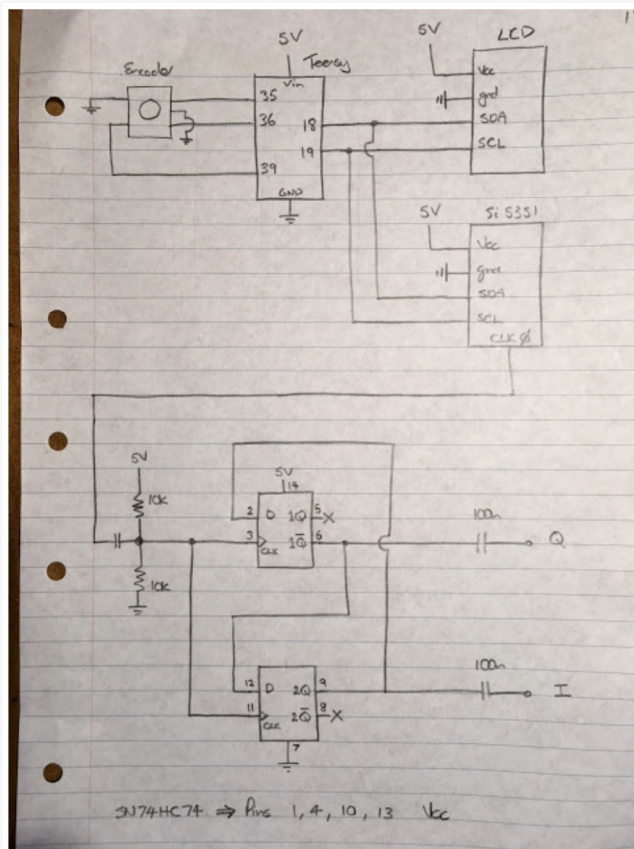 5V
Teensy
Encoder
Vin
35
36
39
18
19
GND
5V
LCD
Vcc
grd
SDA
SCL
5V
Si 5351
Vcc
grd
SDA
SCL
CLK Ø
5V
10k
10k
5V
14
2 D 1Q 5 X
3 CLK 1Q̅ 6
100n
Q
12 D 2Q 9
11 CLK 2Q̅ 8 X
7
100n
I
SN74HC74 ⇒ Pins 1, 4, 10, 13 Vcc